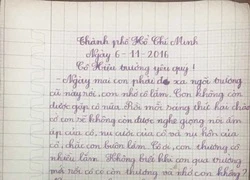 Thành phố Hồ Chí Minh
Ngày 6-11-2016
Cô Hiệu trưởng yêu quý!
- Ngày mai con phải đi xa ngôi trường
cũ này rồi, con nhớ cô lắm. Con không còn
được gặp cô nữa. Rồi mỗi sáng thứ hai chào
cờ con sẽ không còn được nghe giọng nói ấm
áp của cô, nụ cười của cô và nụ hôn của
cô, chắc con buồn lắm. Cô ơi, con thương cô
nhiều lắm. Không biết khi con qua trường
mới rồi cô có còn thương và nhớ con không